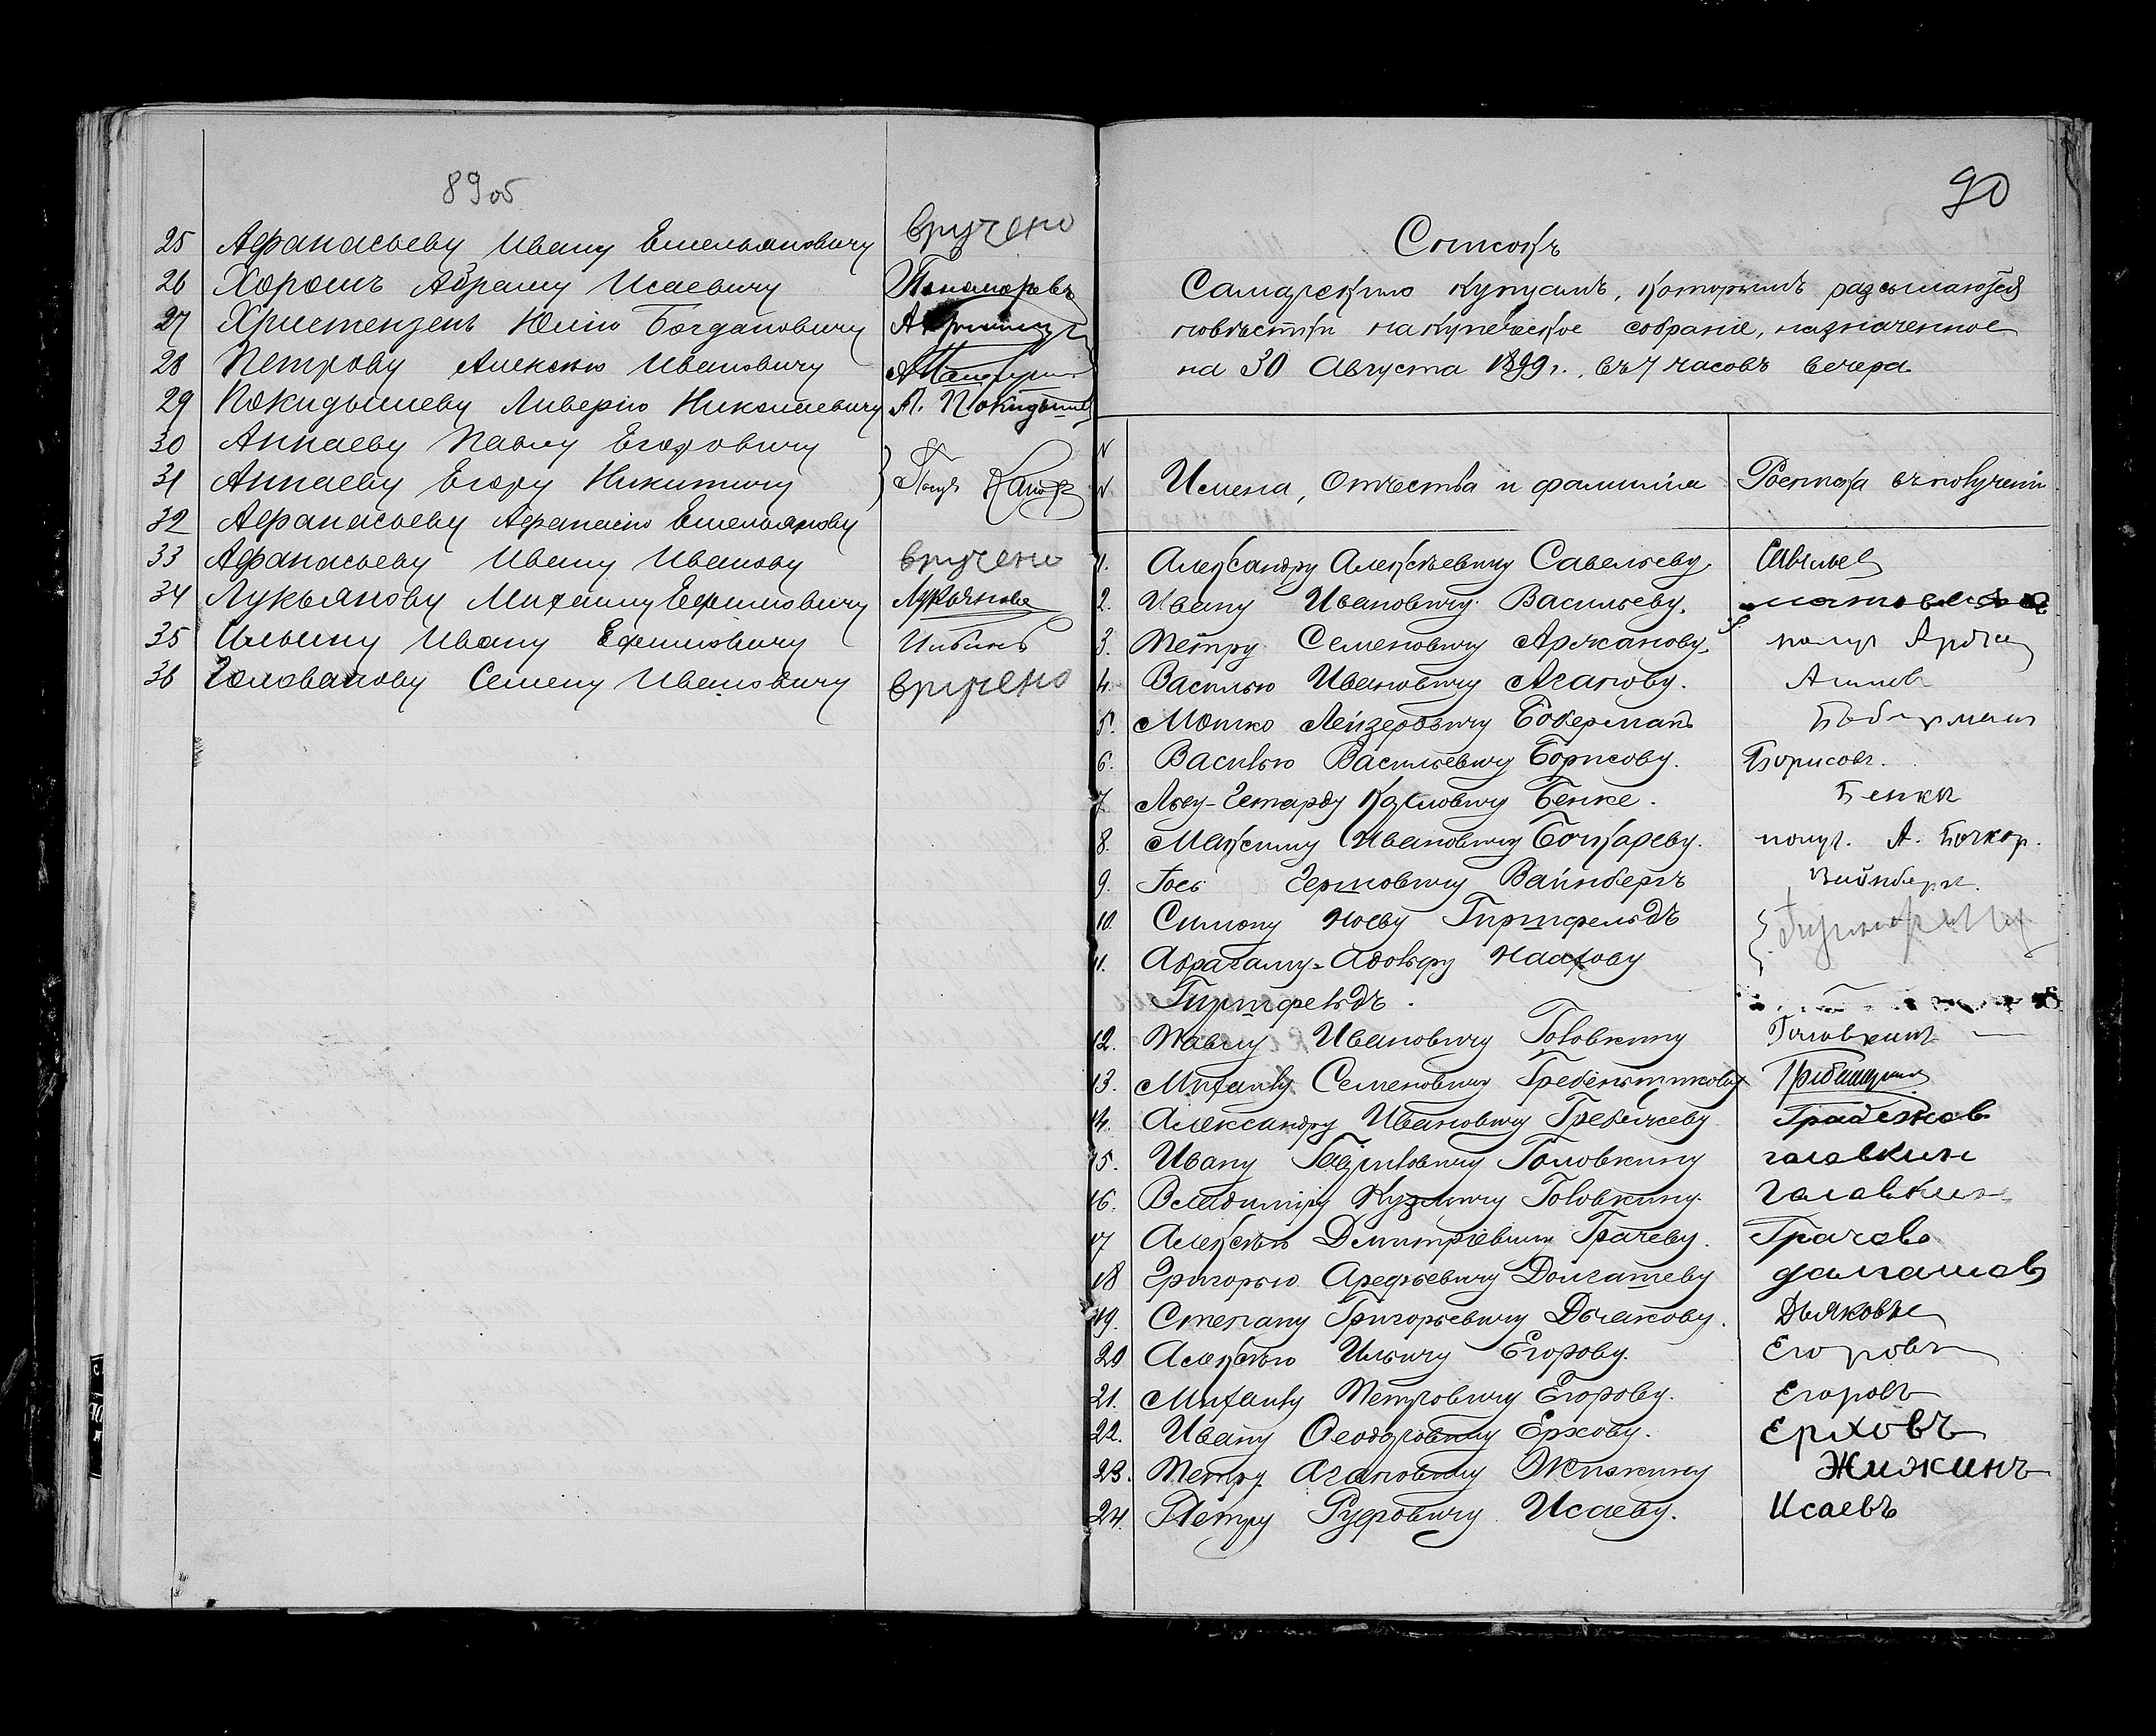 89об
25 Афанасьеву Ивану Емельяновичу вручено
26 Хорошъ Абраму Исаевичу Пономаревъ
27 Христензенъ Юлію Богдановичу
28 Петрову Алексѣю Ивановичу
29 Покидышеву Ливерію Николаевичу Л. Покидышев
30 Аннаеву Павлу Егоровичу
31 Аннаеву Егору Никитичу Получ
32 Афанасьеву Афанасію Емельянову
33 Афанасьеву Ивану Иванову вручено
34 Лукьянову Михаилу Ефимовичу Лукьянова
35 Ильину Ивану Ефимовичу Ильинъ
36 Голованову Семену Ивановичу вручено
90
Списокъ
Самарскимъ купцамъ, которымъ разсылаются
повѣстки на купеческое собраніе, назначенное
на 30 Августа 1899 г., въ 7 часовъ вечера.
N N Имена, Отчества и фамиліи Росписка въ полученіи
1. Александру Алексѣевичу Савельеву Савельев
2. Ивану Ивановичу Васильеву.
3. Петру Семеновичу Аржанову. получ
4. Василью Ивановичу Агапову.
5. Мошко Лейзеровичу Боберманъ Боберман
6. Василью Васильевичу Борисову. Борисовъ.
7. Льву-Гетарду Карловичу Бенке. Бенке
8. Максиму Ивановичу Бочкареву. получ. А. Бочкар.
9. Гось Германовичу Вайнбергъ Вайнберг.
10. Симону Ноеву Гиршфельдъ Гиршфельд
11. Абрагаму-Адольфу Наахову
Гиршфельдъ.
12. Павлу Ивановичу Головкину Головкинъ
13. Михаилу Семеновичу Гребеньщикову
14. Александру Ивановичу Гребежеву Грабежов
15. Ивану Гавриловичу Головкину галавкин
16. Владиміру Кузмичу Головкину. Галавкин
17 Алексѣю Дмитріевичу Грачеву. Грачовъ
18 Григорью Арефьевичу Долгашеву далгашов
19. Степану Григорьевичу Дьякову. Дьяковъ
20 Алексѣю Ильичу Егорову. Егоровъ
21. Михаилу Петровичу Егорову. Егоровъ
22. Ивану Ѳеодоровичу Ерхову. Ерховъ
23. Петру Агаповичу Жижкину Жижкинъ
24. Петру Руфовичу Исаеву. Исаевъ